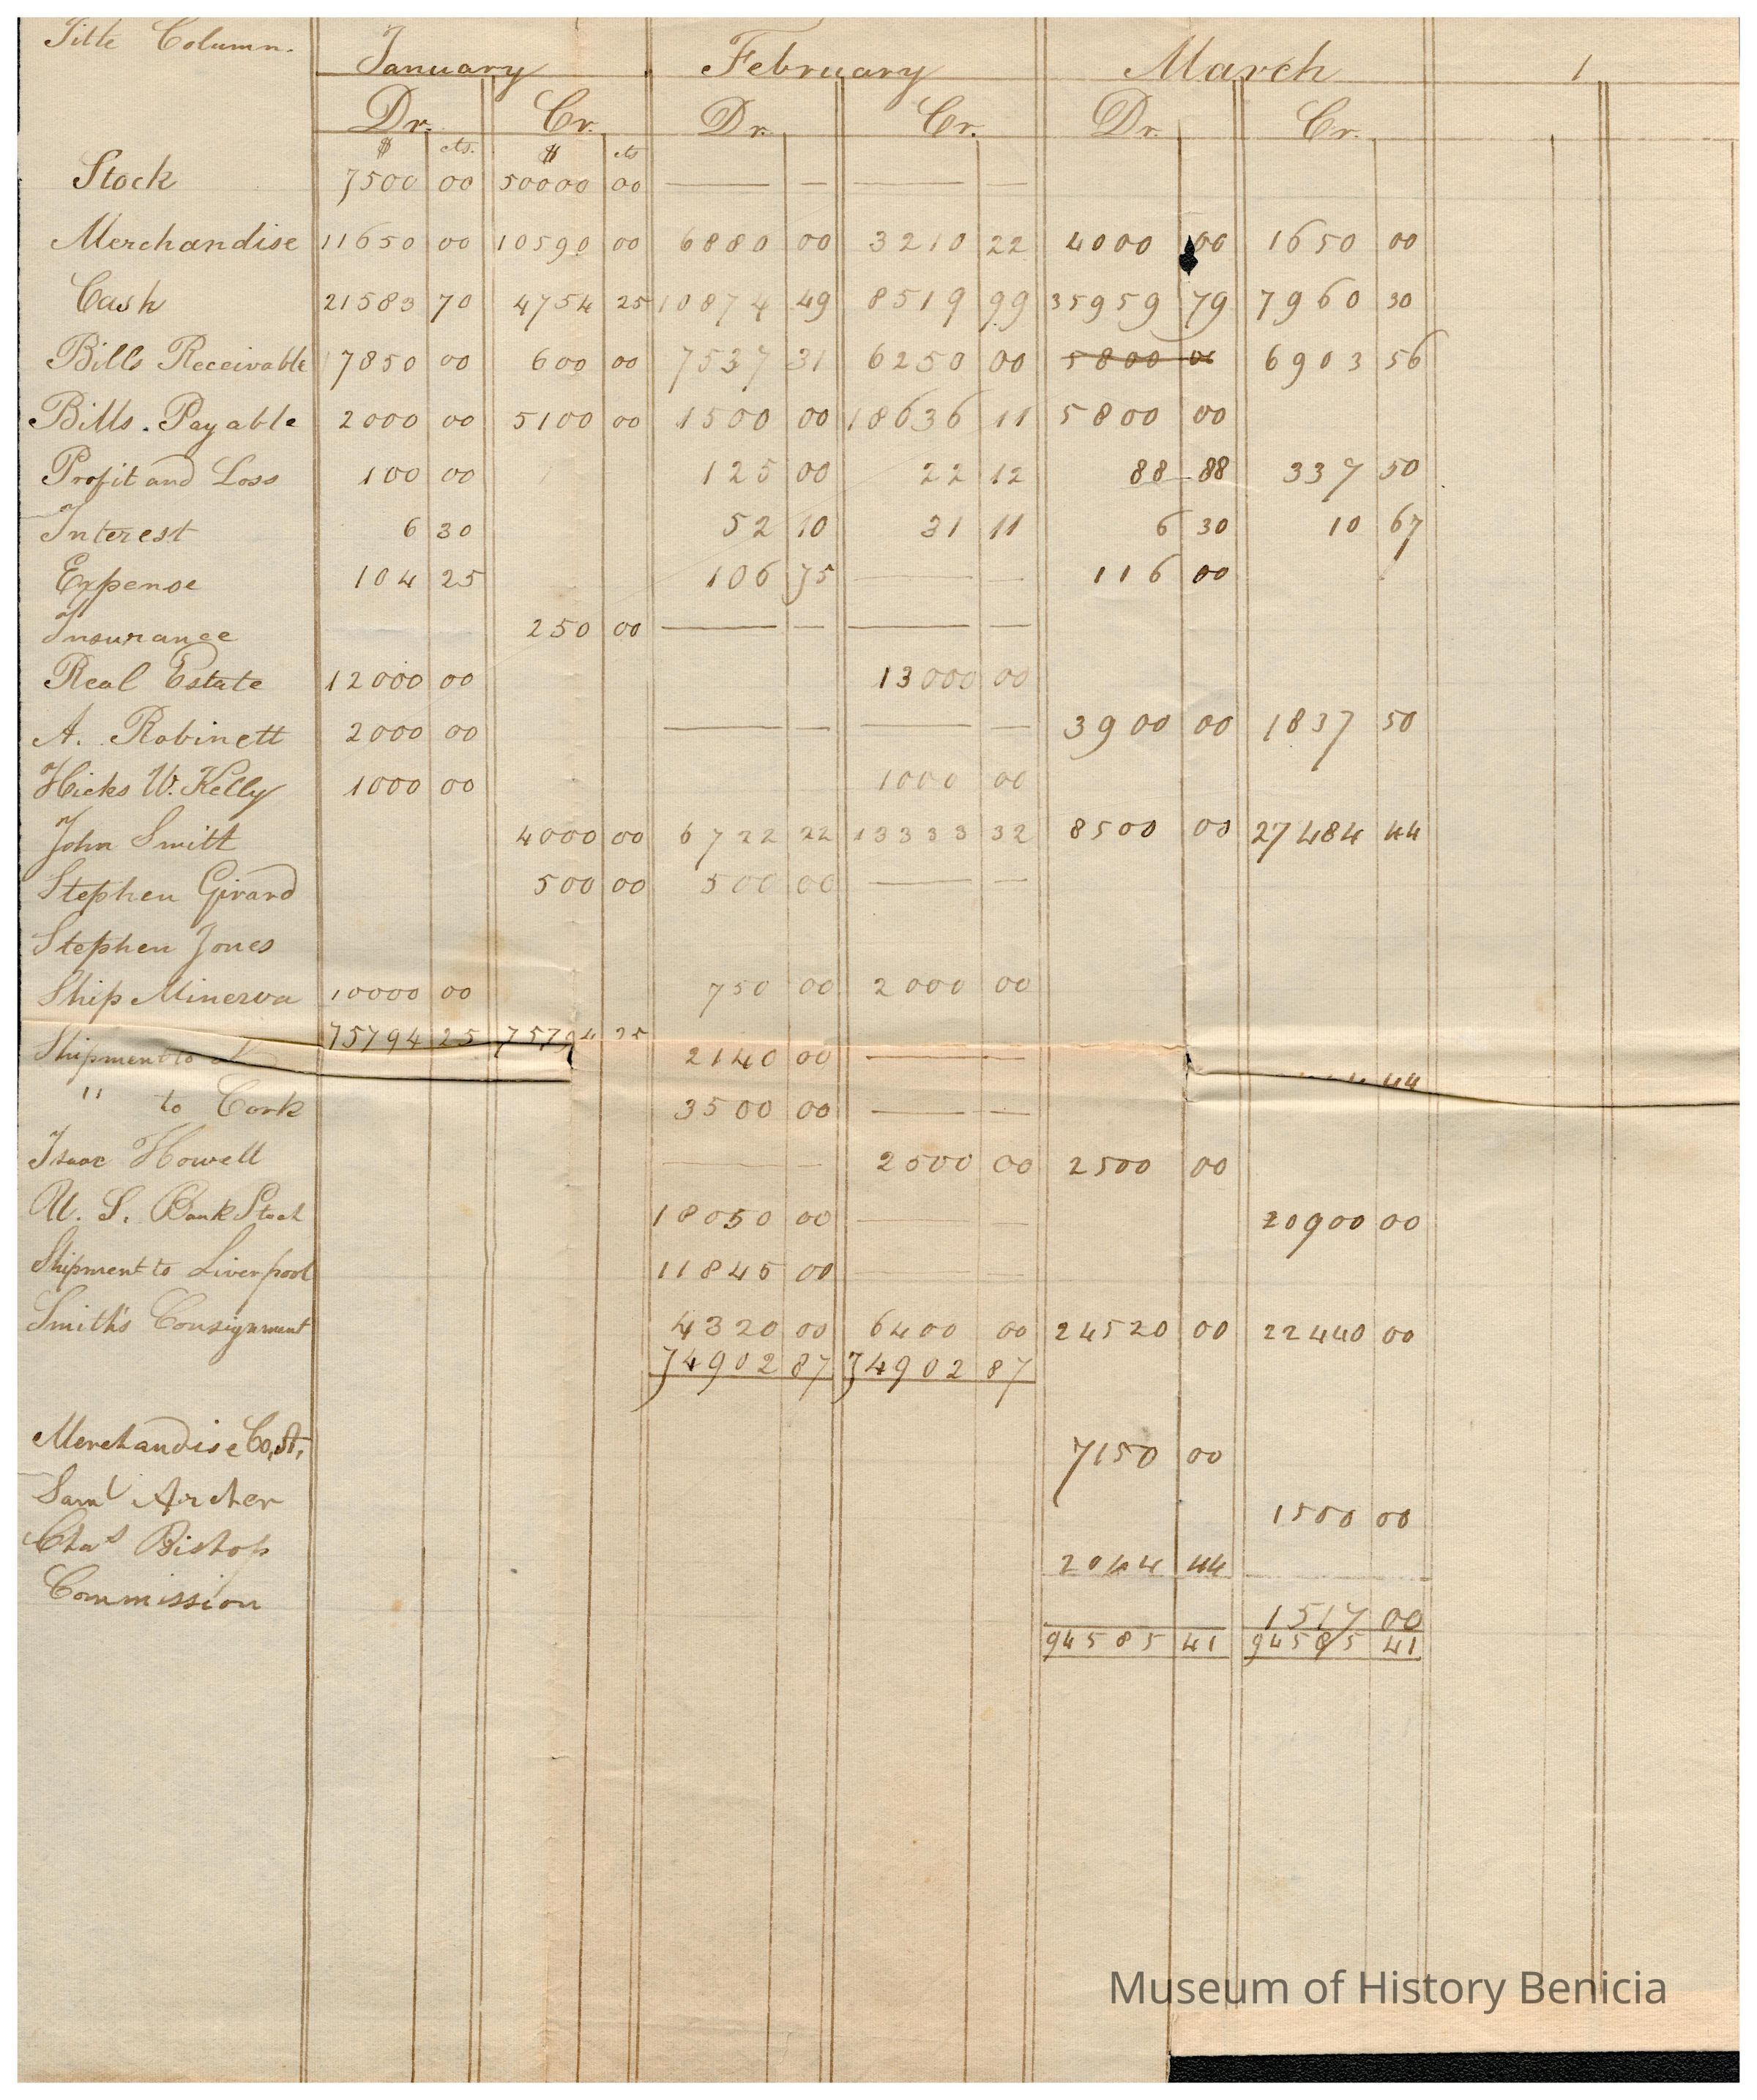 Title Column. January February March 1
Dr. Cr. Dr. Cr. Dr. Cr.
$ cts. $ cts
Stock 7500 00 50000 00 — — — —
Merchandise 11650 00 10590 00 6880 00 3210 22 4000 00 1650 00
Cash 21583 70 4754 25 10874 49 8519 99 35959 79 7960 30
Bills Receivable 7850 00 600 00 7537 31 6250 00 5800 00 6903 56
Bills Payable 2000 00 5100 00 1500 00 18636 11 5800 00
Profit and Loss 100 00 125 00 22 12 88 88 337 50
Interest 6 30 52 10 31 11 6 30 10 67
Expense 104 25 106 75 — — 116 00
Insurance 250 00 — — — —
Real Estate 12000 00 13000 00
A. Robinett 2000 00 — — — — 3900 00 1837 50
Hicks W. Kelly 1000 00 1000 00
John Smitt 4000 00 6722 22 13333 32 8500 00 27484 44
Stephen Girard 500 00 500 00 — —
Stephen Jones
Ship Minerva 10000 00 750 00 2000 00
75794 25 75794 25
Shipment to 2140 00 — —
44
" to Cork 3500 00 — —
Isaac Howell — — 2500 00 2500 00
U. S. Bank Stock 18050 00 — — 20900 00
Shipment to Liverpool 11845 00 — —
Smith's Consignment 4320 00 6400 00 24520 00 22440 00
74902 87 74902 87
Merchandise Co. A. 7150 00
Saml Archer 1500 00
Chas Bishop 2044 44
Commission 1517 00
94585 41 94585 41
Museum of History Benicia